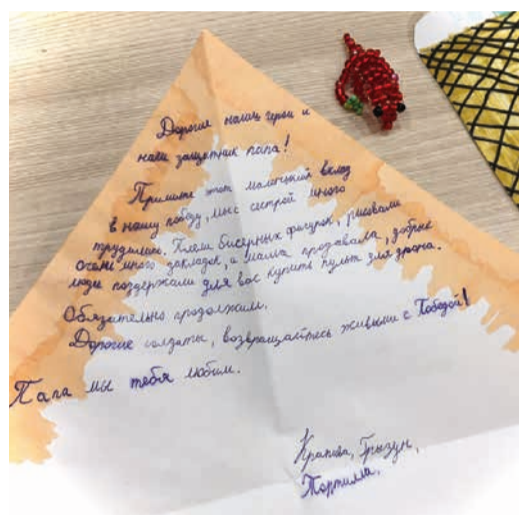 Дорогие наши герои и
наш защитник папа!
Примите этот маленький вклад
в нашу победу, мы с сестрой много
трудились. Плели бисерных фигурок, рисовали
очень много закладок, а мама продавала, добрые
люди поддержали для вас купить пульт для дрона.
Обязательно продолжим.
Дорогие солдаты, возвращайтесь живыми с Победой!
Папа мы тебя любим.
Крапива, Грызун,
Тортилла.